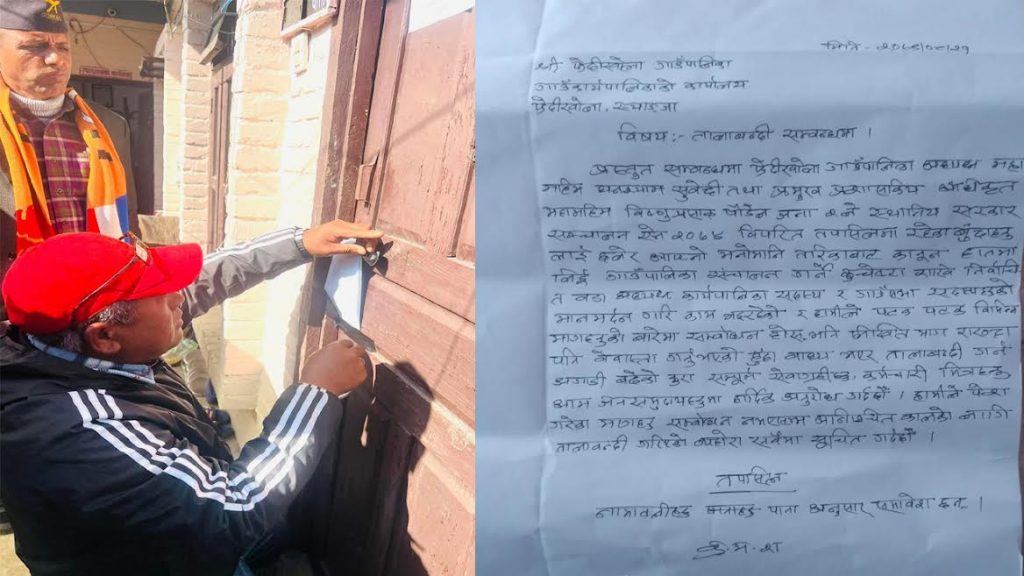 मिति:- २०७८/०८/२१
श्री फेदीखोला गाउँपालिका
गाउँकार्यपालिकाको कार्यालय
फेदीखोला, स्याङ्जा
विषय:- तालाबन्दी सम्बन्धमा ।
प्रस्तुत सम्बन्धमा फेदीखोला गाउँपालिका अध्यक्ष महा
महिम घनश्याम सुवेदी तथा प्रमुख प्रशासकिय अधिकृत
महामहिम विष्णुप्रसाद पौडेल जना २ले स्थानिय सरकार
सञ्चालन ऐन २०७४ विपरित तपासिलमा रहेका बुँदाहरु
लाई आफ्नो मनोमानि तरिकाबाट कानून हातमा
लिई गाउँपालिका संचालन गर्ने निर्वाचि
त वडा अध्यक्ष कार्यपालिका सदस्य र गाउँसभा सदस्यहरुको
मानमर्दन गरि काम भइरहेको र हामीले पटक पटक विभिन्न
मागहरुको बारेमा सम्बोधन होस् भनि लिखित माग राख्दा
पनि वेवास्ता गर्नुभएको हुँदा वाध्य भएर तालाबन्दी गर्न
अगाडी बढेको कुरा सम्पूर्ण सेवाग्राही, कर्मचारी मित्रहरु
आम जनसमुदायहरुमा हार्दिक अनुरोध गर्दछौं । हामीले पेश
गरेका मागहरु सम्बोधन नभएसम्म अनिश्चित कालको लागि
तालाबन्दी गरिएको व्यहोरा सबैमा सूचित गर्दछौं ।
तपासिल
नामावलीहरु पाना अनुसार समावेश छन् ।